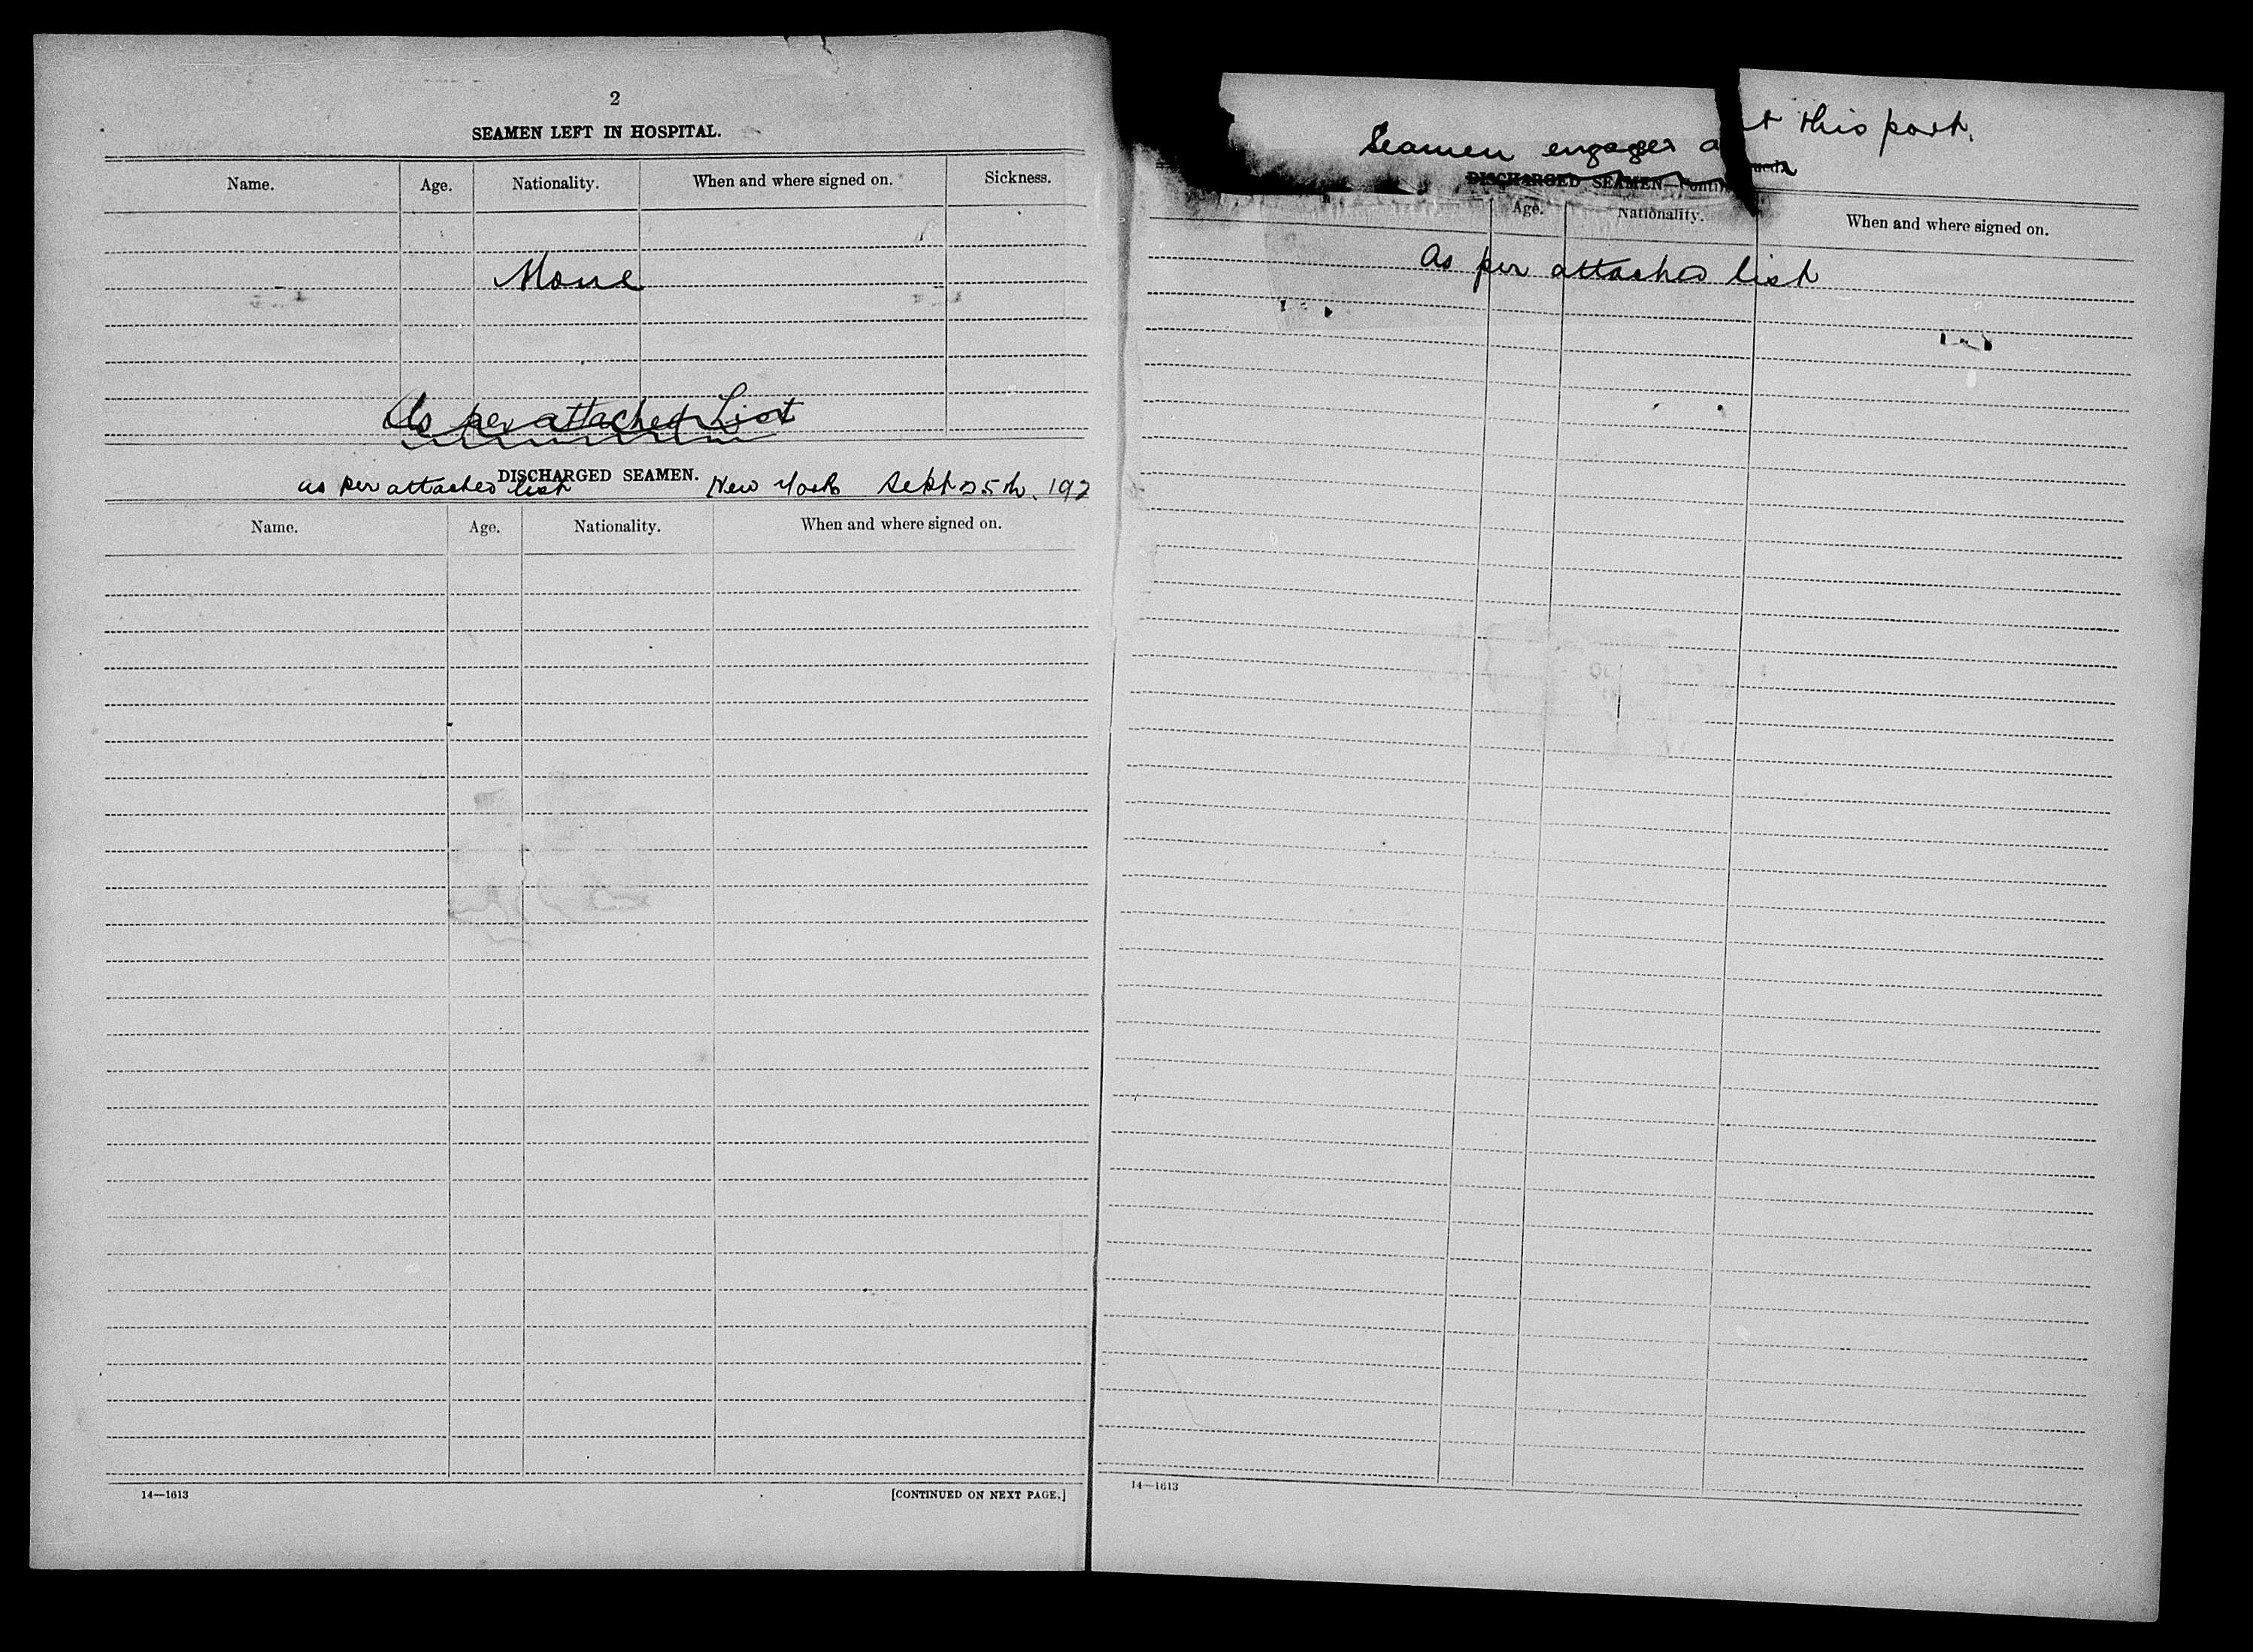 2
SEAMEN LEFT IN HOSPITAL.
Name. Age. Nationality. When and where signed on. Sickness.
None
As per attached List
DISCHARGED SEAMEN.
as per attached list New York Sept 25th. 192
Name. Age. Nationality. When and where signed on.
14—1613 [CONTINUED ON NEXT PAGE.]
Seamen engaged at this port.
DISCHARGED SEAMEN—Continued.
Age. Nationality. When and where signed on.
As per attached list
14—1613